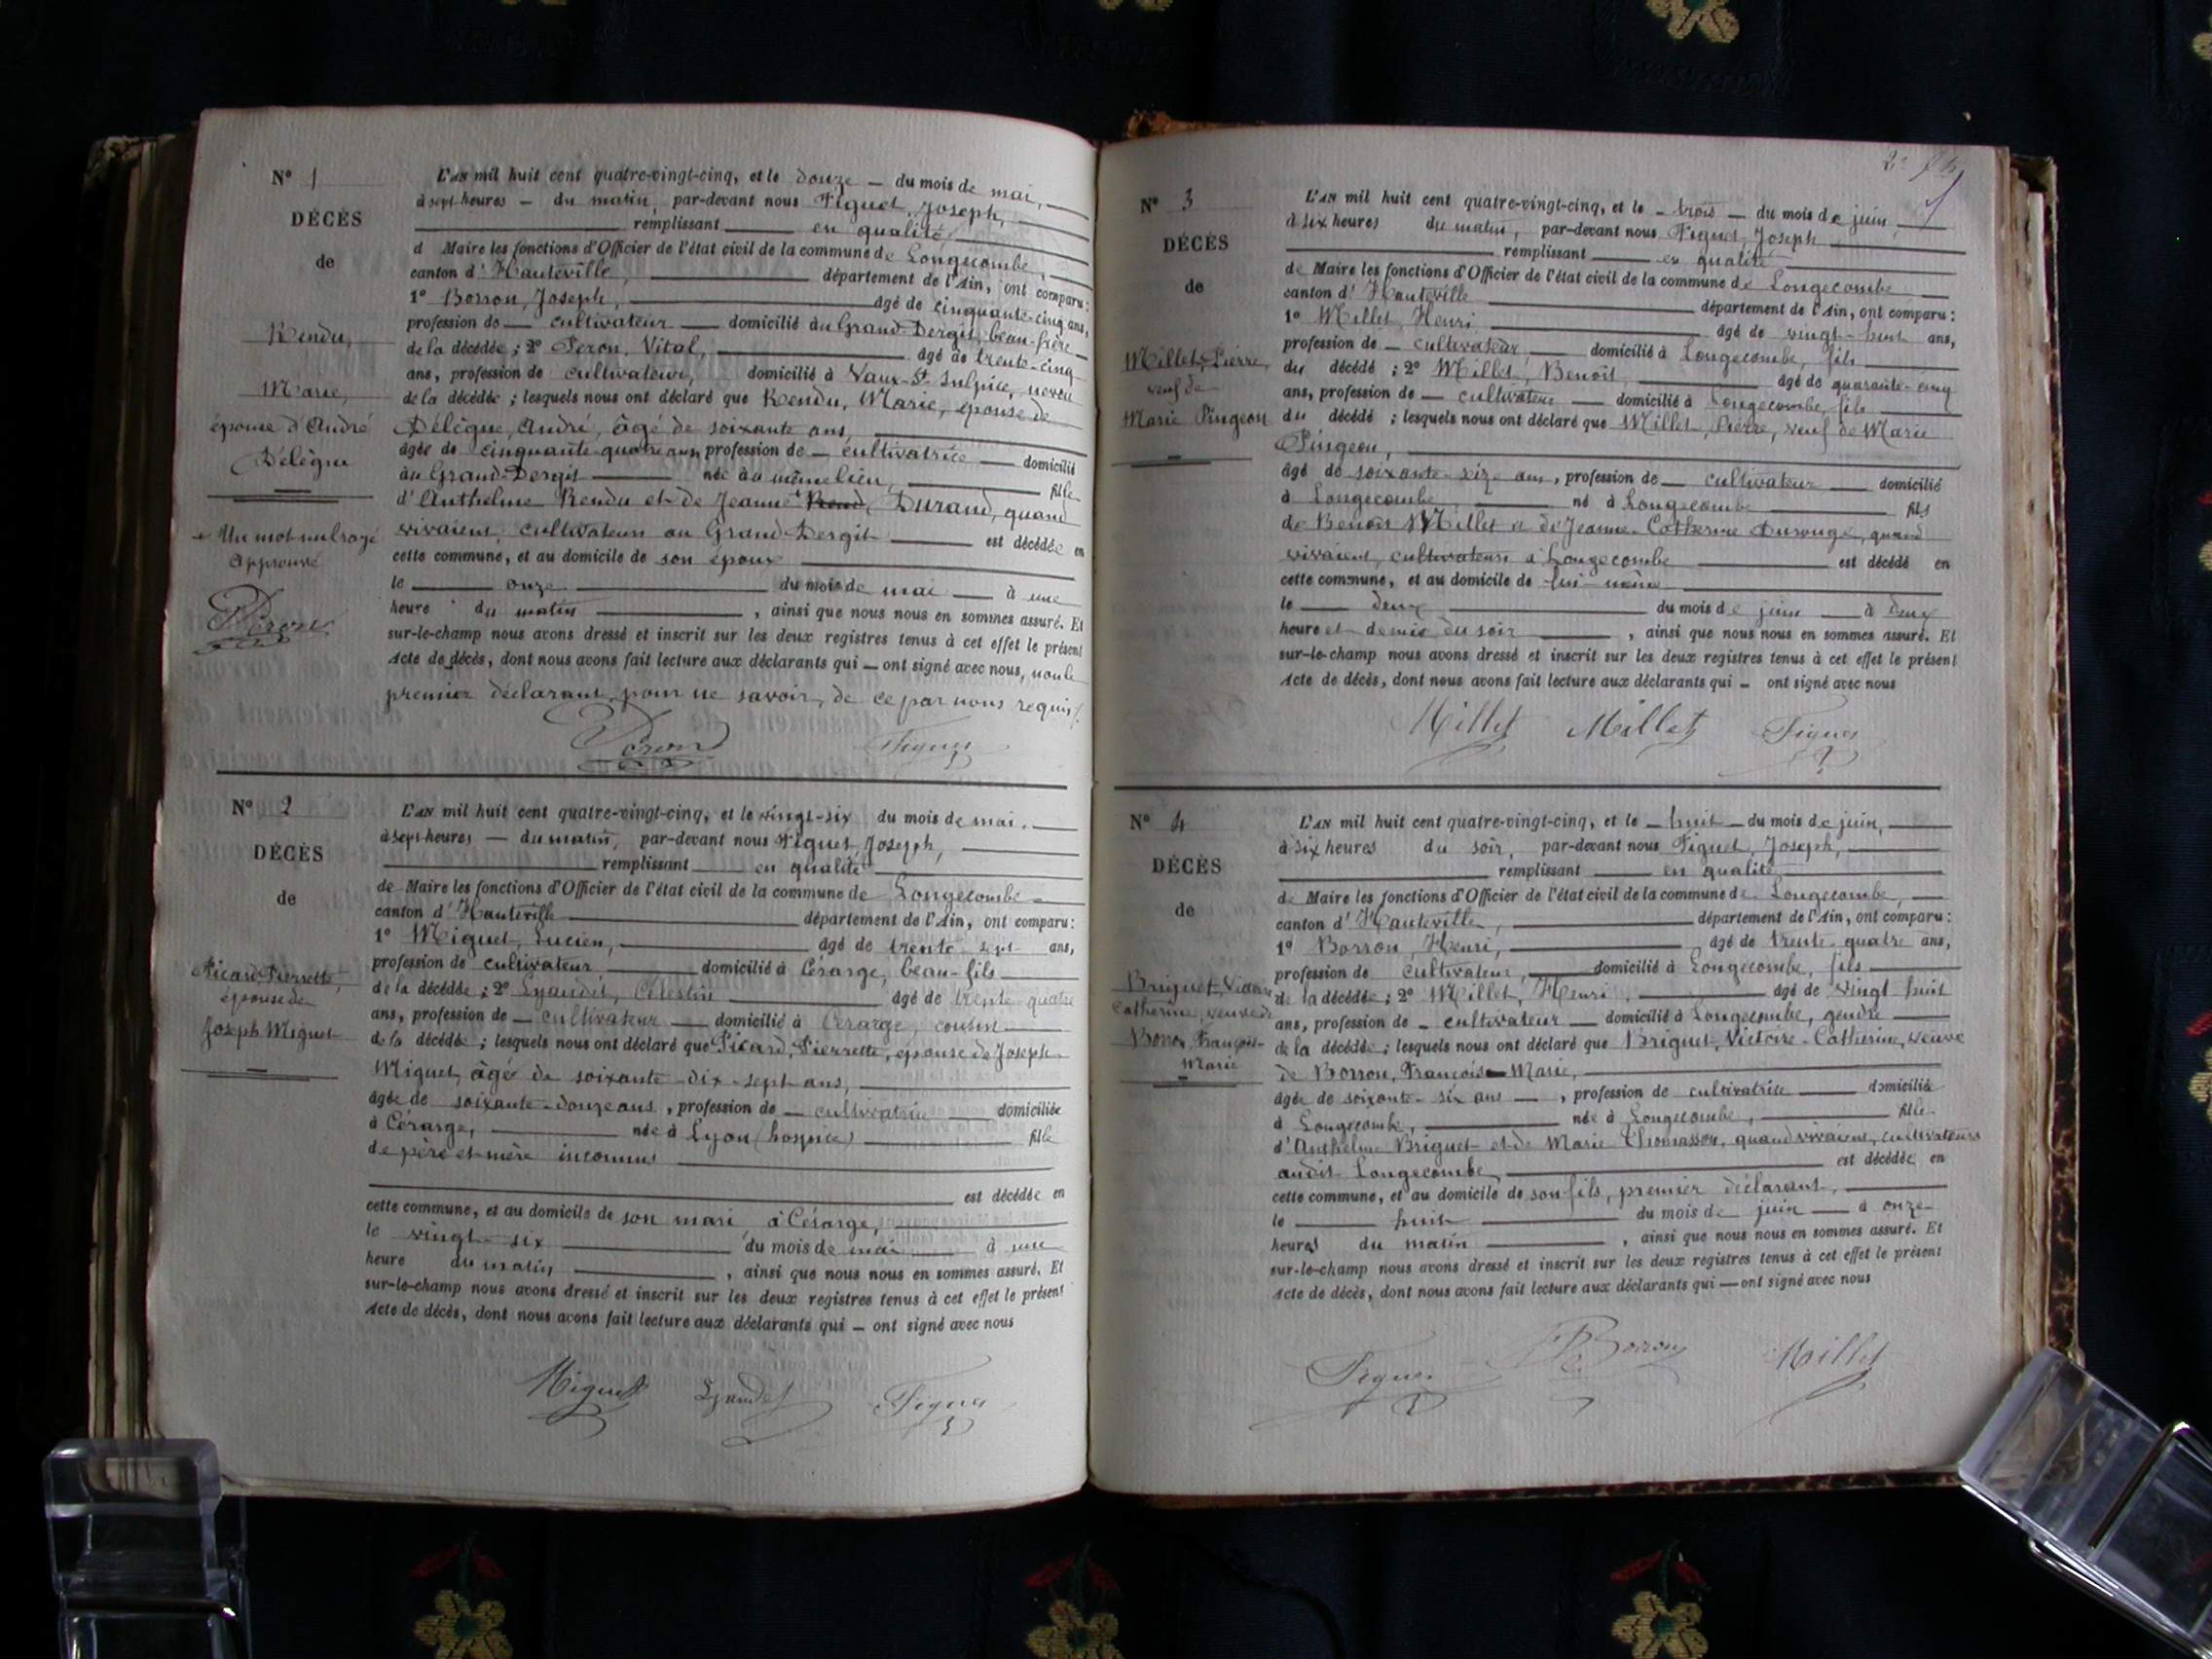 N° 1
DÉCÈS
de
Rendu,
Marie,
épouse d'André
Délègue
+ Un mot nul rayé
approuvé
Péron
L'AN mil huit cent quatre-vingt-cinq, et le douze — du mois de mai,
à sept heures — du matin, par-devant nous Figuet, Joseph,
remplissant en qualité
d Maire les fonctions d'Officier de l'état civil de la commune de Longecombe,
canton d'Hauteville, département de l'Ain, ont comparu :
1° Borron, Joseph, âgé de cinquante-cinq ans,
profession de — cultivateur — domicilié au Grand-Dergit, beau-frère
de la décédée ; 2° Peron, Vital, âgé de trente-cinq
ans, profession de cultivateur, domicilié à Vaux-St-Sulpice, neveu
de la décédée ; lesquels nous ont déclaré que Rendu, Marie, épouse de
Délègue, André, âgé de soixante ans,
âgée de cinquante-quatre ans, profession de — cultivatrice — domicilié
au Grand-Dergit née au même lieu, fille
d'Anthelme Rendu et de Jeanne + Rend, Durand, quand
vivaient, cultivateurs au Grand Dergit est décédée en
cette commune, et au domicile de son époux
le onze du mois de mai — à une
heure du matin , ainsi que nous nous en sommes assuré. Et
sur-le-champ nous avons dressé et inscrit sur les deux registres tenus à cet effet le présent
Acte de décès, dont nous avons fait lecture aux déclarants qui — ont signé avec nous, non le
premier déclarant, pour ne savoir, de ce par nous requis/.
Péron Figuet
N° 2
DÉCÈS
de
Picard Pierrette,
épouse de
Joseph Miguet
L'AN mil huit cent quatre-vingt-cinq, et le vingt-six du mois de mai,
à sept heures — du matin, par-devant nous Figuet, Joseph,
remplissant en qualité
de Maire les fonctions d'Officier de l'état civil de la commune de Longecombe
canton d'Hauteville département de l'Ain, ont comparu :
1° Miguet, Lucien, âgé de trente-sept ans,
profession de cultivateur, domicilié à Cérarge, beau-fils
de la décédée ; 2° Lyaudet, Célestin âgé de trente quatre
ans, profession de — cultivateur — domicilié à Cérarge, cousin
de la décédée ; lesquels nous ont déclaré que Picard, Pierrette, épouse de Joseph
Miguet, âgé de soixante-dix-sept ans,
âgée de soixante-douze ans, profession de — cultivatrice domiciliée
à Cérarge, née à Lyon (hospice) fille
de père et mère inconnus
est décédée en
cette commune, et au domicile de son mari, à Cérarge,
le vingt-six du mois de mai à une
heure du matin , ainsi que nous nous en sommes assuré. Et
sur-le-champ nous avons dressé et inscrit sur les deux registres tenus à cet effet le présent
Acte de décès, dont nous avons fait lecture aux déclarants qui — ont signé avec nous
Miguet Lyaudet Figuet
N° 3
DÉCÈS
de
Millet, Pierre,
veuf de
Marie Pingeon
L'AN mil huit cent quatre-vingt-cinq, et le — trois — du mois de juin,
à six heures du matin, par-devant nous Figuet, Joseph
remplissant en qualité
de Maire les fonctions d'Officier de l'état civil de la commune de Longecombe
canton d'Hauteville département de l'Ain, ont comparu :
1° Millet, Henri âgé de vingt-huit ans,
profession de — cultivateur, domicilié à Longecombe, fils
du décédé ; 2° Millet, Benoit, âgé de quarante-cinq
ans, profession de — cultivateur — domicilié à Longecombe, fils
du décédé ; lesquels nous ont déclaré que Millet, Pierre, veuf de Marie
Pingeon,
âgé de soixante-seize ans, profession de — cultivateur — domicilié
à Longecombe né à Longecombe fils
de Benoit Millet et de Jeanne-Catherine Durouge, quand
vivaient, cultivateurs à Longecombe est décédé en
cette commune, et au domicile de lui-même
le deux du mois de juin — à deux
heure et demie du soir , ainsi que nous nous en sommes assuré. Et
sur-le-champ nous avons dressé et inscrit sur les deux registres tenus à cet effet le présent
Acte de décès, dont nous avons fait lecture aux déclarants qui — ont signé avec nous
Millet Millet Figuet
N° 4
DÉCÈS
de
Briguet, Victoire
Catherine, veuve de
Borron François-
Marie
L'AN mil huit cent quatre-vingt-cinq, et le — huit — du mois de juin,
à six heures du soir, par-devant nous Figuet, Joseph,
remplissant en qualité
de Maire les fonctions d'Officier de l'état civil de la commune de Longecombe,
canton d'Hauteville, département de l'Ain, ont comparu :
1° Borron, Henri, âgé de trente-quatre ans,
profession de cultivateur, domicilié à Longecombe, fils
de la décédée ; 2° Millet, Henri, âgé de vingt huit
ans, profession de — cultivateur — domicilié à Longecombe, gendre
de la décédée ; lesquels nous ont déclaré que Briguet, Victoire-Catherine, veuve
de Borron, François-Marie,
âgée de soixante-six ans —, profession de cultivatrice domiciliée
à Longecombe, née à Longecombe, fille
d'Anthelme Briguet et de Marie Thomasson, quand vivaient, cultivateurs
audit Longecombe, est décédée en
cette commune, et au domicile de son fils, premier déclarant,
le huit du mois de juin — à onze
heures du matin , ainsi que nous nous en sommes assuré. Et
sur-le-champ nous avons dressé et inscrit sur les deux registres tenus à cet effet le présent
Acte de décès, dont nous avons fait lecture aux déclarants qui — ont signé avec nous
Figuet Borron Millet